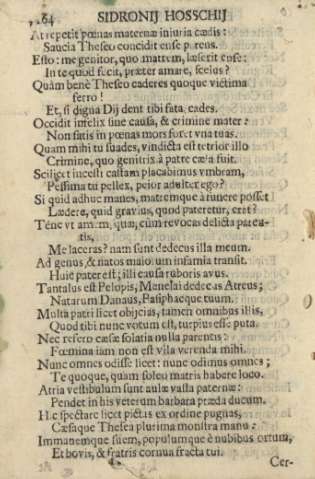 164 SIDRONIJ HOSSCHIJ
At repetit pœnas maternæ iniuria cædis:
Saucia Theseo concidit ense parens.
Esto: me genitor, quo matrem, læserit ense:
In te quod fecit, præter amare, scelus?
Quàm benè Theseo caderes quoque victima
ferro!
Et, si digna Dij dent tibi fata, cades.
Occidit infelix sine causa, & crimine mater:
Non satis in pœnas mors foret vna tuas.
Quam mihi tu suades, vindicta est tetrior illo
Crimine, quo genitrix à patre cæsa fuit.
Scilicet incesti castam placabimus vmbram,
Pessima tu pellex, peior adulter ego?
Si quid adhuc manes, matremque à funere posset
Lædere, quid grauius, quod pateretur, erat?
Téne vt amem, quæ, cùm reuocas delicta paren-
tis,
Me laceras? nam sunt dedecus illa meum.
Ad genus, & natos maiorum infamia transit.
Huic pater est; illi causa ruboris auus.
Tantalus est Pelopis, Menelai dedecus Atreus;
Natarum Danaus, Pasiphaeque tuum.
Multa patri licet obijcias, tamen omnibus illis,
Quod tibi nunc votum est, turpius esse puta.
Nec refero cæsæ solatia nulla parentis:
Fœmina iam non est vlla verenda mihi.
Nunc omnes odisse licet: nunc odimus omnes;
Te quoque, quam soleo matris habere loco.
Atria vestibulum sunt aulæ vasta paternæ:
Pendet in his veterum barbara præda ducum.
Hic spectare licet pictas ex ordine pugnas,
Cæsaque Thesea plurima monstra manu:
Immanemque suem, populumque è nubibus ortum,
Et bovis, & fratris cornua fracta tui.
Cer-